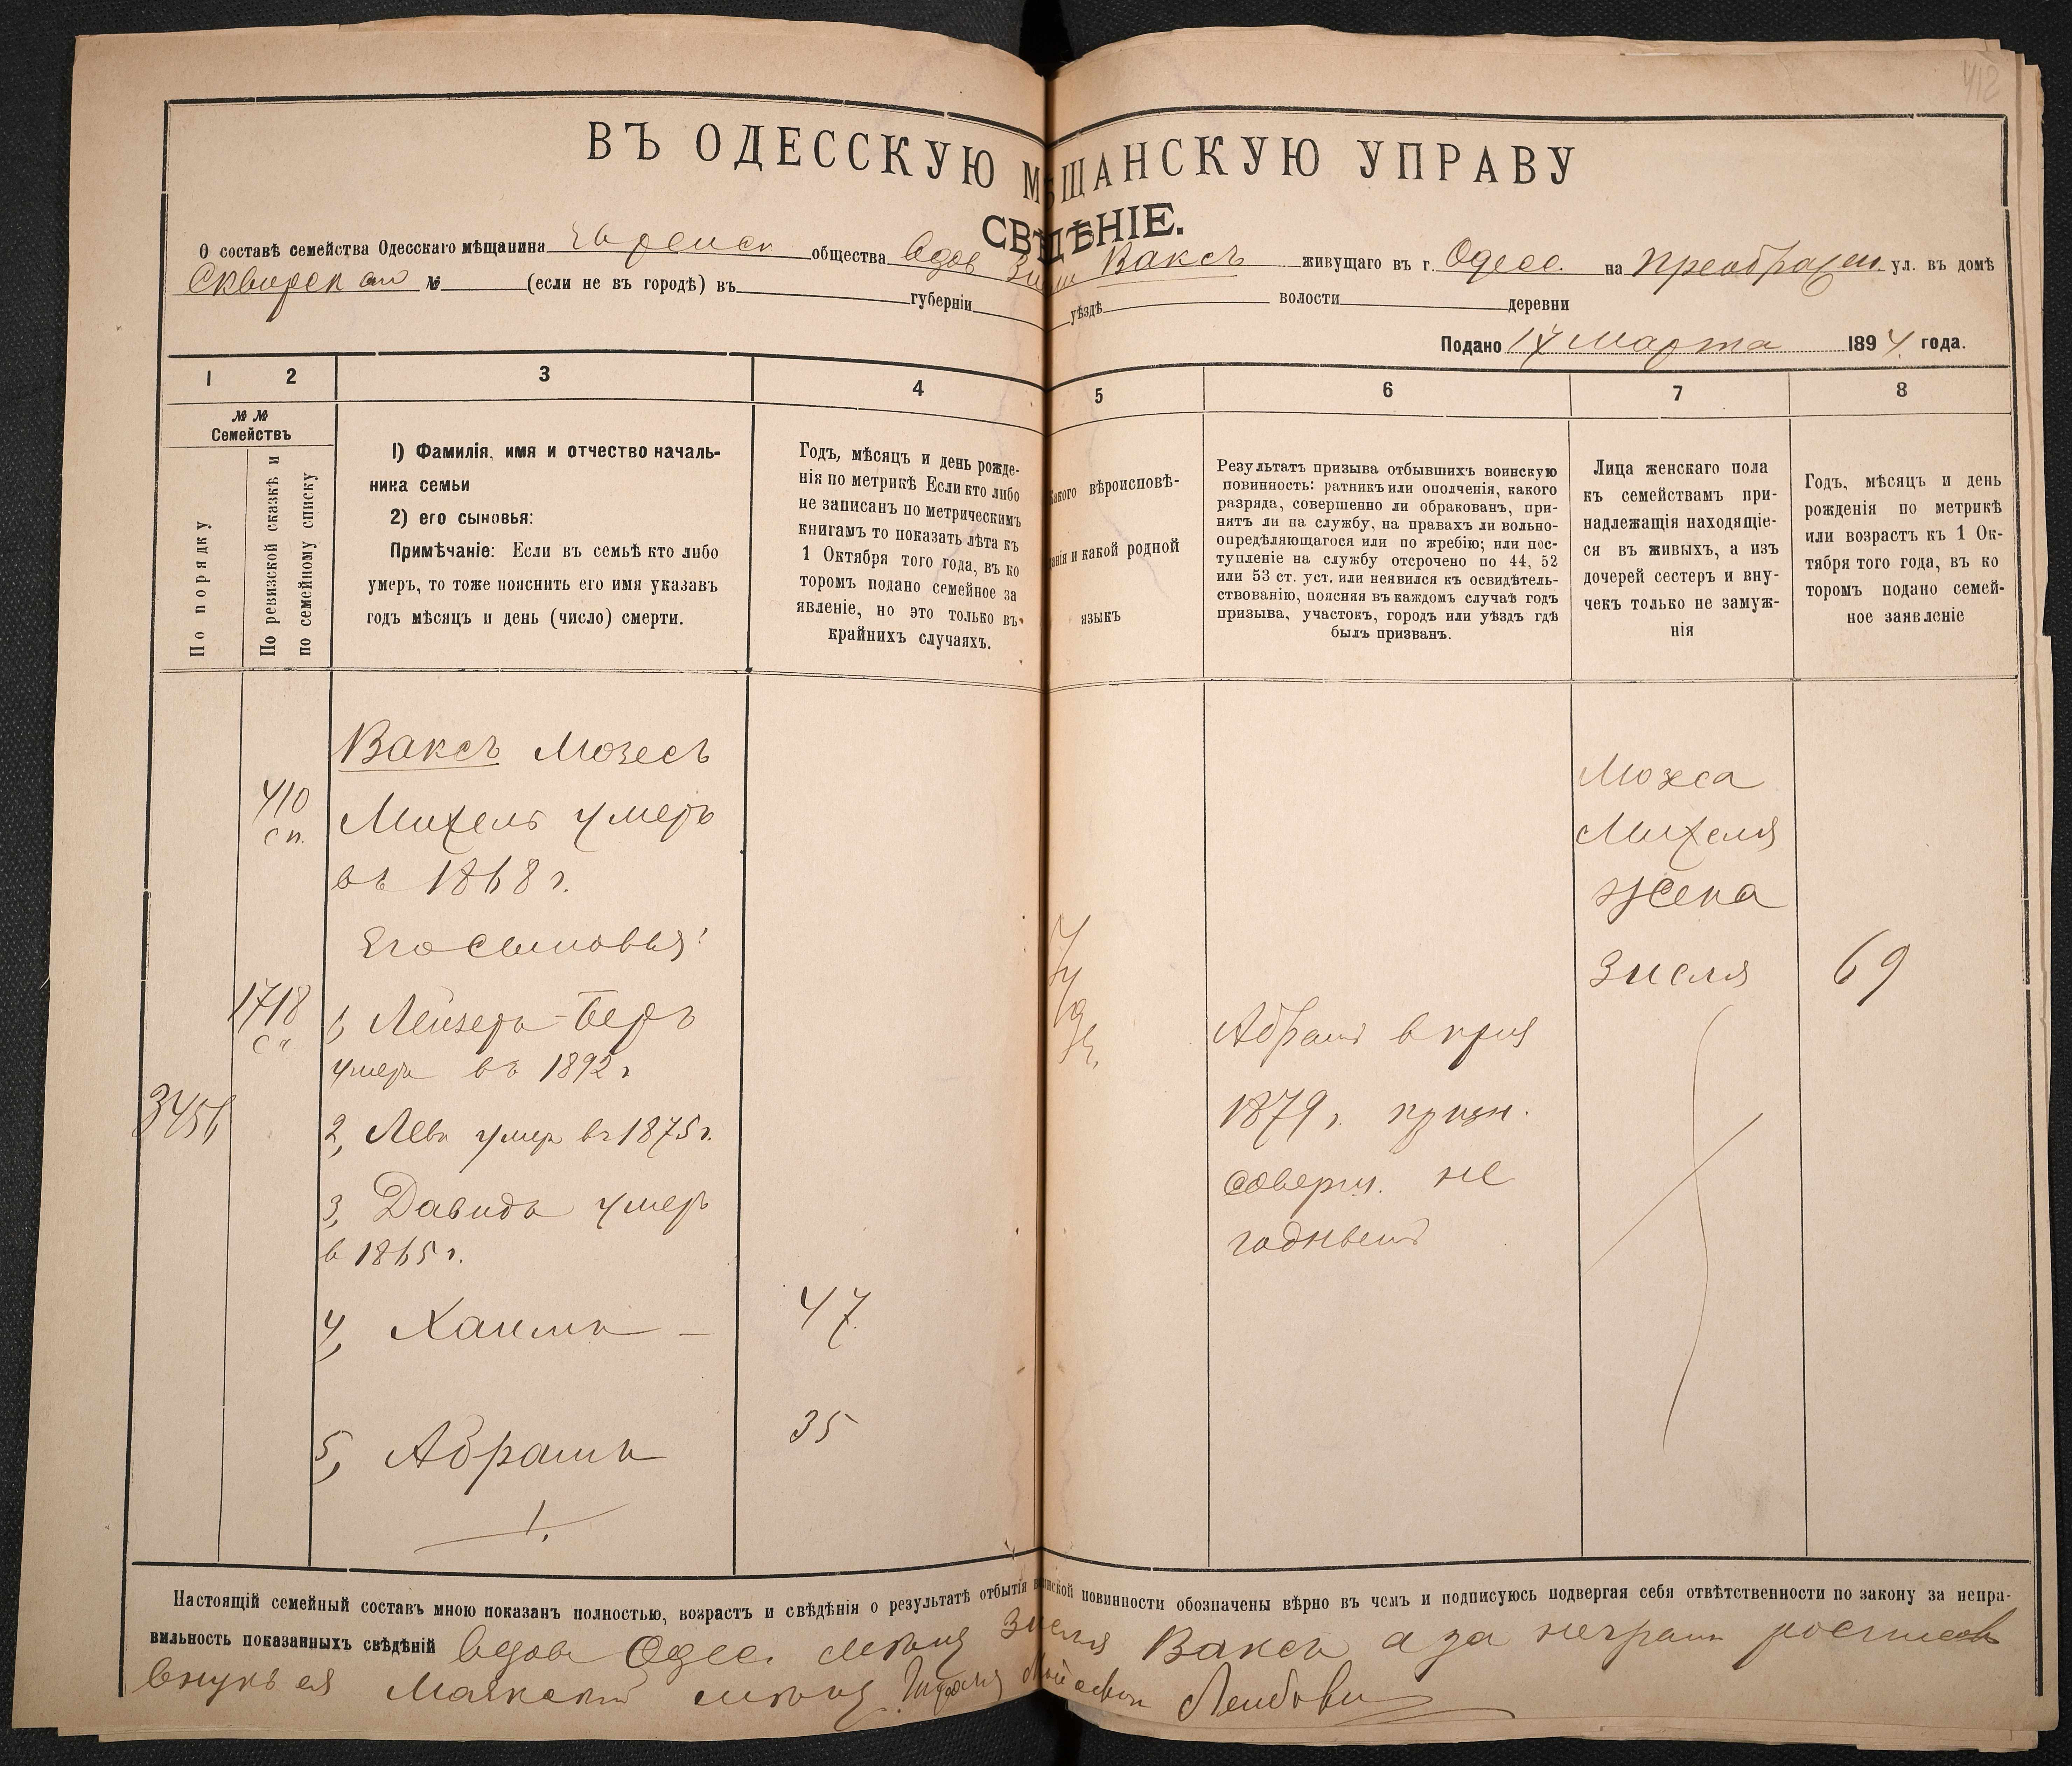 412
ВЪ ОДЕССКУЮ МѢЩАНСКУЮ УПРАВУ
СВѢДѢНІЕ.
О составѣ семейства Одесскаго мѣщанина Еврейск общества Вдов Зисли Ваксъ живущаго въ г. Одесс. на Преображен. ул. въ домѣ
Сквирск № (если не въ городѣ) въ губерніи уѣздѣ волости деревни
Подано 14 Марта 1894 года.
1 2 3 4 5 6 7 8
№ №
Семействъ
По порядку
По ревизской сказкѣ и
по семейному списку
1) Фамилія, имя и отчество началь-
ника семьи
2) его сыновья:
Примѣчаніе: Если въ семьѣ кто либо
умеръ, то тоже пояснить его имя указавъ
годъ мѣсяцъ и день (число) смерти.
Годъ, мѣсяцъ и день рожде-
нія по метрикѣ Если кто либо
не записанъ по метрическимъ
книгамъ то показать лѣта къ
1 Октября того года, въ ко
торомъ подано семейное за
явленіе, но это только въ
крайнихъ случаяхъ.
Какого вѣроисповѣ-
данія и какой родной
языкъ
Результатъ призыва отбывшихъ воинскую
повинность: ратникъ или ополченія, какого
разряда, совершенно ли обракованъ, при-
нятъ ли на службу, на правахъ ли вольно-
опредѣляющагося или по жребію; или пос-
тупленіе на службу отсрочено по 44, 52
или 53 ст. уст. или неявился къ освидѣтель-
ствованію, поясняя въ каждомъ случаѣ годъ
призыва, участокъ, городъ или уѣздъ гдѣ
былъ призванъ.
Лица женскаго пола
къ семействамъ при-
надлежащія находящіе-
ся въ живыхъ, а изъ
дочерей сестеръ и вну-
чекъ только не замуж-
нія
Годъ, мѣсяцъ и день
рожденія по метрикѣ
или возрастъ къ 1 Ок-
тября того года, въ ко
торомъ подано семей-
ное заявленіе
410
сп.
1718
сп
3456
Ваксъ Мозесъ
Михель умеръ
въ 1868 г.
Его сыновья:
1, Лейзеръ-Беръ
умеръ въ 1892 г
2, Левъ умер въ 1875 г.
3, Давидъ умеръ
в 1865 г.
4, Хаимъ – 47
5, Абрамъ 35
Абрамъ в при
1879 г. призн.
соверш. не
годнымъ
Мозеса
Михеля
жена
Зисля 69
Настоящій семейный составъ мною показанъ полностью, возрастъ и свѣдѣнія о результатѣ отбытія воинской повинности обозначены вѣрно въ чемъ и подписуюсь подвергая себя отвѣтственности по закону за непра-
вильность показанныхъ свѣдѣній Вдова Одес. мѣщ Зисля Ваксъ а за неграм росписався
внукъ ея Маякскій мѣщ Лейбови